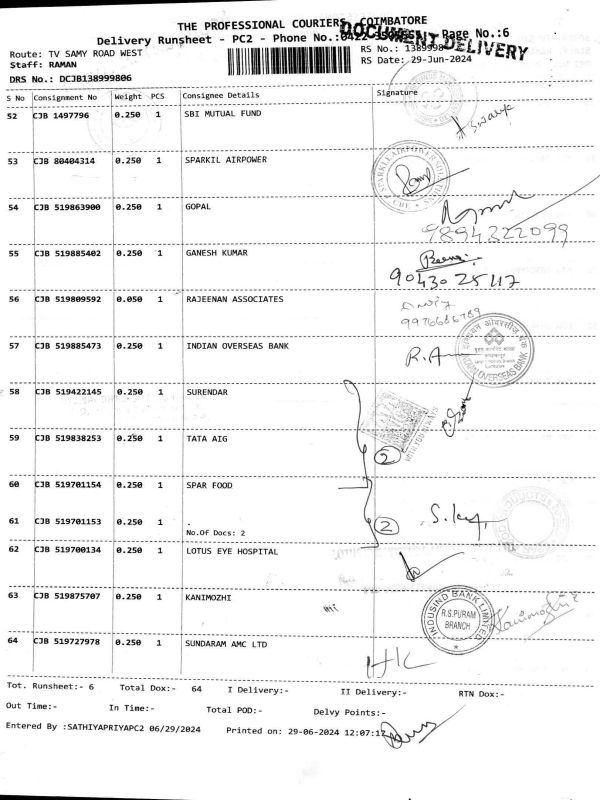 THE PROFESSIONAL COURIERS, COIMBATORE
Delivery Runsheet - PC2 - Phone No.:0422 Page No.:6
DOCUMENT DELIVERY
Route: TV SAMY ROAD WEST
RS No.: 1389998
Staff: RAMAN
RS Date: 29-Jun-2024
DRS No.: DCJB138999806
S No Consignment No Weight PCS Consignee Details Signature
52 CJB 1497796 0.250 1 SBI MUTUAL FUND
53 CJB 80404314 0.250 1 SPARKIL AIRPOWER
54 CJB 519863900 0.250 1 GOPAL
9894322099
55 CJB 519885402 0.250 1 GANESH KUMAR
90430 25417
56 CJB 519809592 0.050 1 RAJEENAN ASSOCIATES
57 CJB 519885473 0.250 1 INDIAN OVERSEAS BANK
INDIAN OVERSEAS BANK
58 CJB 519422145 0.250 1 SURENDAR
59 CJB 519838253 0.250 1 TATA AIG
2
60 CJB 519701154 0.250 1 SPAR FOOD
61 CJB 519701153 0.250 1 .
2
No.Of Docs: 2
62 CJB 519700134 0.250 1 LOTUS EYE HOSPITAL
63 CJB 519875707 0.250 1 KANIMOZHI
INDUSIND BANK LIMITED
R.S.PURAM
BRANCH
64 CJB 519727978 0.250 1 SUNDARAM AMC LTD
Tot. Runsheet:- 6 Total Dox:- 64 I Delivery:- II Delivery:- RTN Dox:-
Out Time:- In Time:- Total POD:- Delvy Points:-
Entered By :SATHIYAPRIYAPC2 06/29/2024 Printed on: 29-06-2024 12:07:1